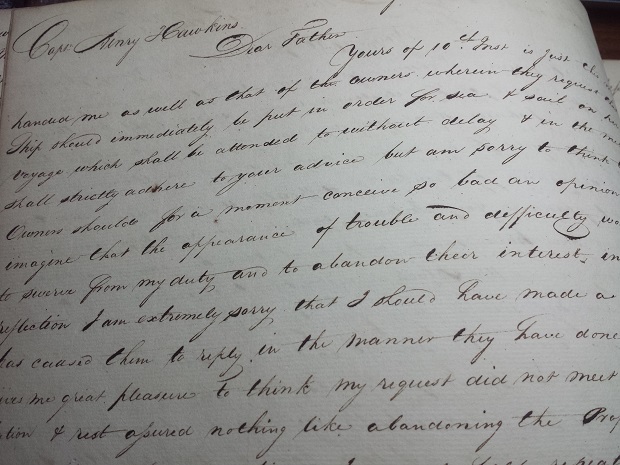 Capt Henry Hawkins
Dear Father
Yours of 10th Inst is just
handed me as well as that of the owners wherein they request
Ship should immediately be put in order for sea & sail on
voyage which shall be attended to without delay & in the
shall strictly adhere to your advice but am sorry to think
Owners should for a moment conceive so bad an opinion
imagine that the appearance of trouble and difficulty
to swerve from my duty and to abandon their interest, in
reflection I am extremely sorry that I should have made a
has caused them to reply in the manner they have done
gives me great pleasure to think my request did not meet
& rest assured nothing like abandoning the